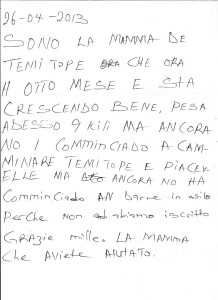 26-04-2013
SONO LA MAMMA DE
TEMITOPE ORA CHE ORA
A OTTO MESE E STA
CRESCENDO BENE, PESA
ADESSO 9 KILI MA ANCORA
NO I COMMINCIADO A CAM-
MINARE TEMITOPE E PIACEV-
ELLE MA ANCORA NO HA
COMMINCIADO AN DARNE in asilo
Perche non abbiamo iscritto
GRAZIE mille. LA MAMMA
Che AVIETE AIUTATO.